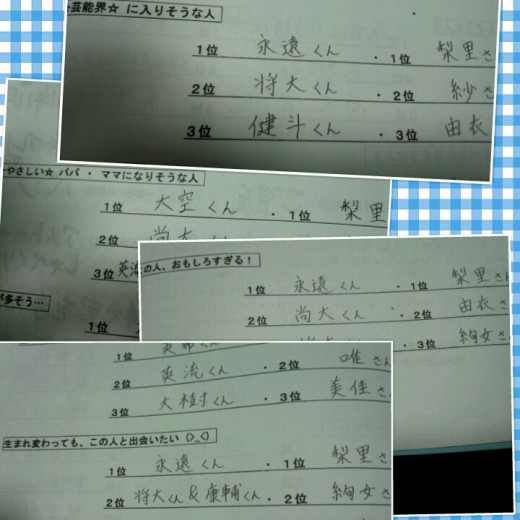 芸能界☆ に入りそうな人
1位 永遠くん ・ 1位 梨里さ
2位 将大くん ・ 2位 紗さ
3位 健斗くん ・ 3位 由衣
やさしい☆ パパ ・ ママになりそうな人
1位 大空くん ・ 1位 梨里
2位 尚大
3位 英流
の人、おもしろすぎる！
1位 永遠くん ・ 1位 梨里さ
2位 尚大くん ・ 2位 由衣さ
・ 3位 絢女さ
が多そう…
1位
1位 ・
2位 英流くん ・ 2位 唯さん
3位 大樹くん ・ 3位 美佳さん
生まれ変わっても、この人と出会いたい（>_<）
1位 永遠くん ・ 1位 梨里さ
2位 将大くん＆康輔くん ・ 2位 絢女さ